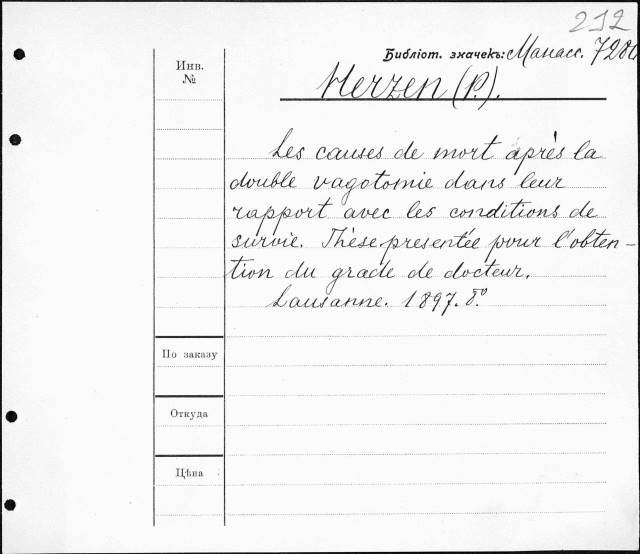 212
Библіот. значекъ: Манасс.
Инв.
№
Herzen (P.).
Les causes de mort après la
double vagotomie dans leur
rapport avec les conditions de
survie. Thèse presentée pour l'obten-
tion du grade de docteur.
Lausanne. 1897. 8.º
По заказу
Откуда
Цѣна